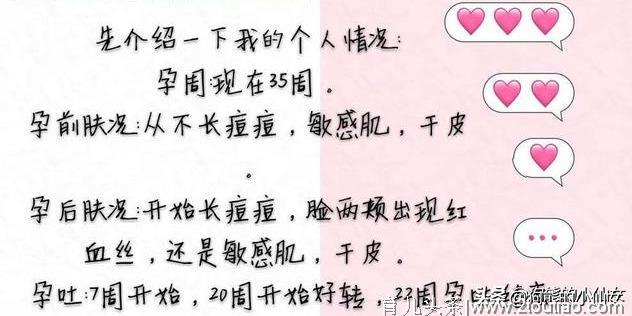 先介绍一下我的个人情况:
孕周:现在35周。
孕前肤况:从不长痘痘，敏感肌，干皮
。
孕后肤况:开始长痘痘，脸两颊出现红
血丝，还是敏感肌，干皮。
孕吐:7周开始，20周开始好转，23周孕吐
头条@狗熊的小仙女